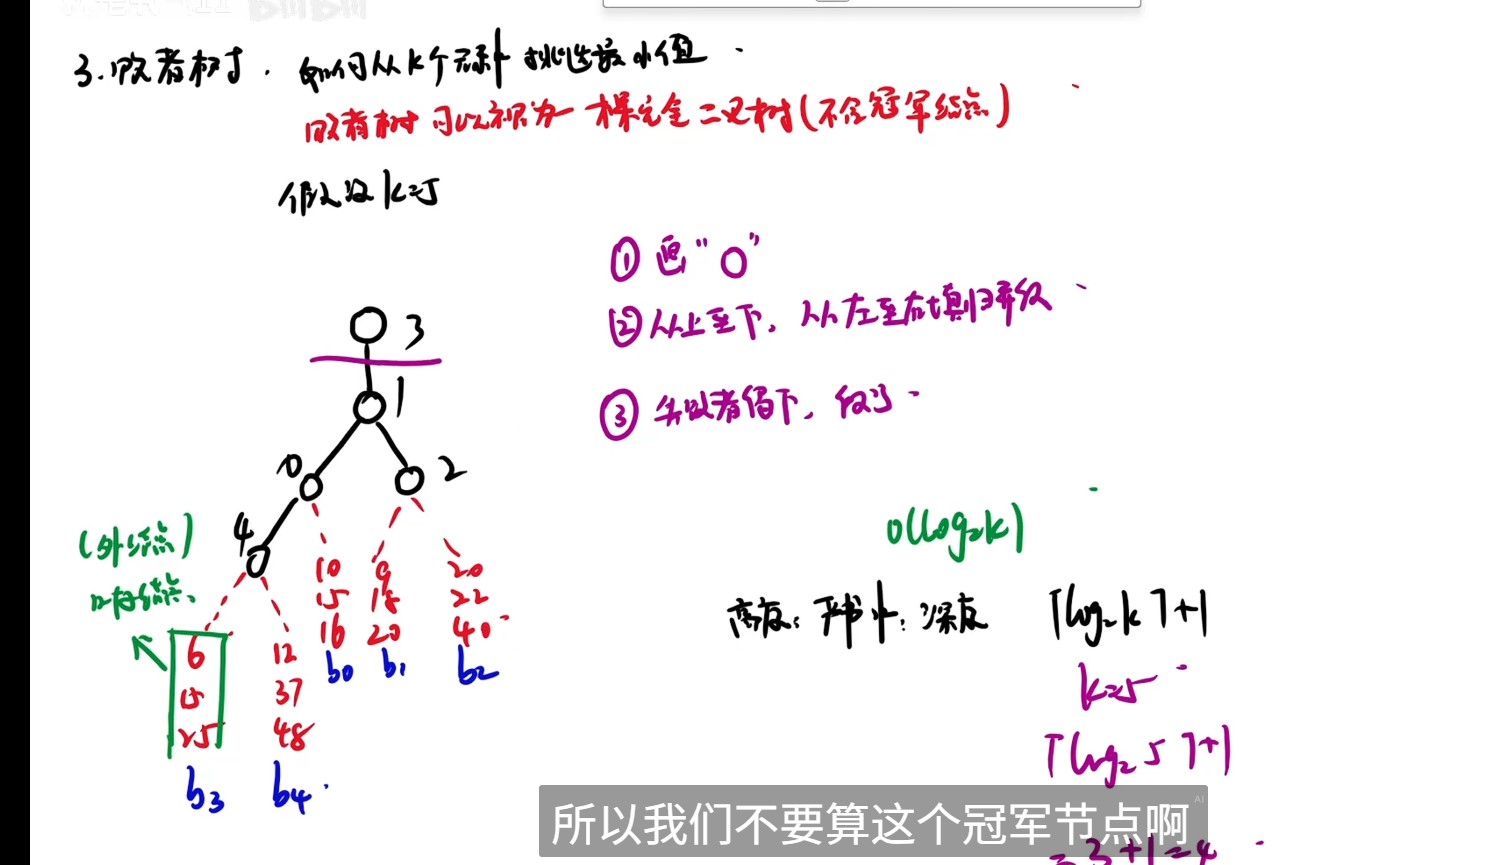 3.败者树. 如何从k个元素中挑选最小值.
败者树可以视为一棵完全二叉树(不含冠军结点)
假设k=5
① 画"O"
② 从上至下,从左至右填归并段
③ 失败者留下,段号.
3
1
0
2
4
(外结点)
叶子结点、
10 9 20
15 18 22
16 20 40
b0 b1 b2
6 12
15 37
25 48
b3 b4
O(log₂k)
高度:严书中:深度 ⌈log₂k⌉+1
k=5
⌈log₂5⌉+1
=3+1=4
所以我们不要算这个冠军节点啊
AI